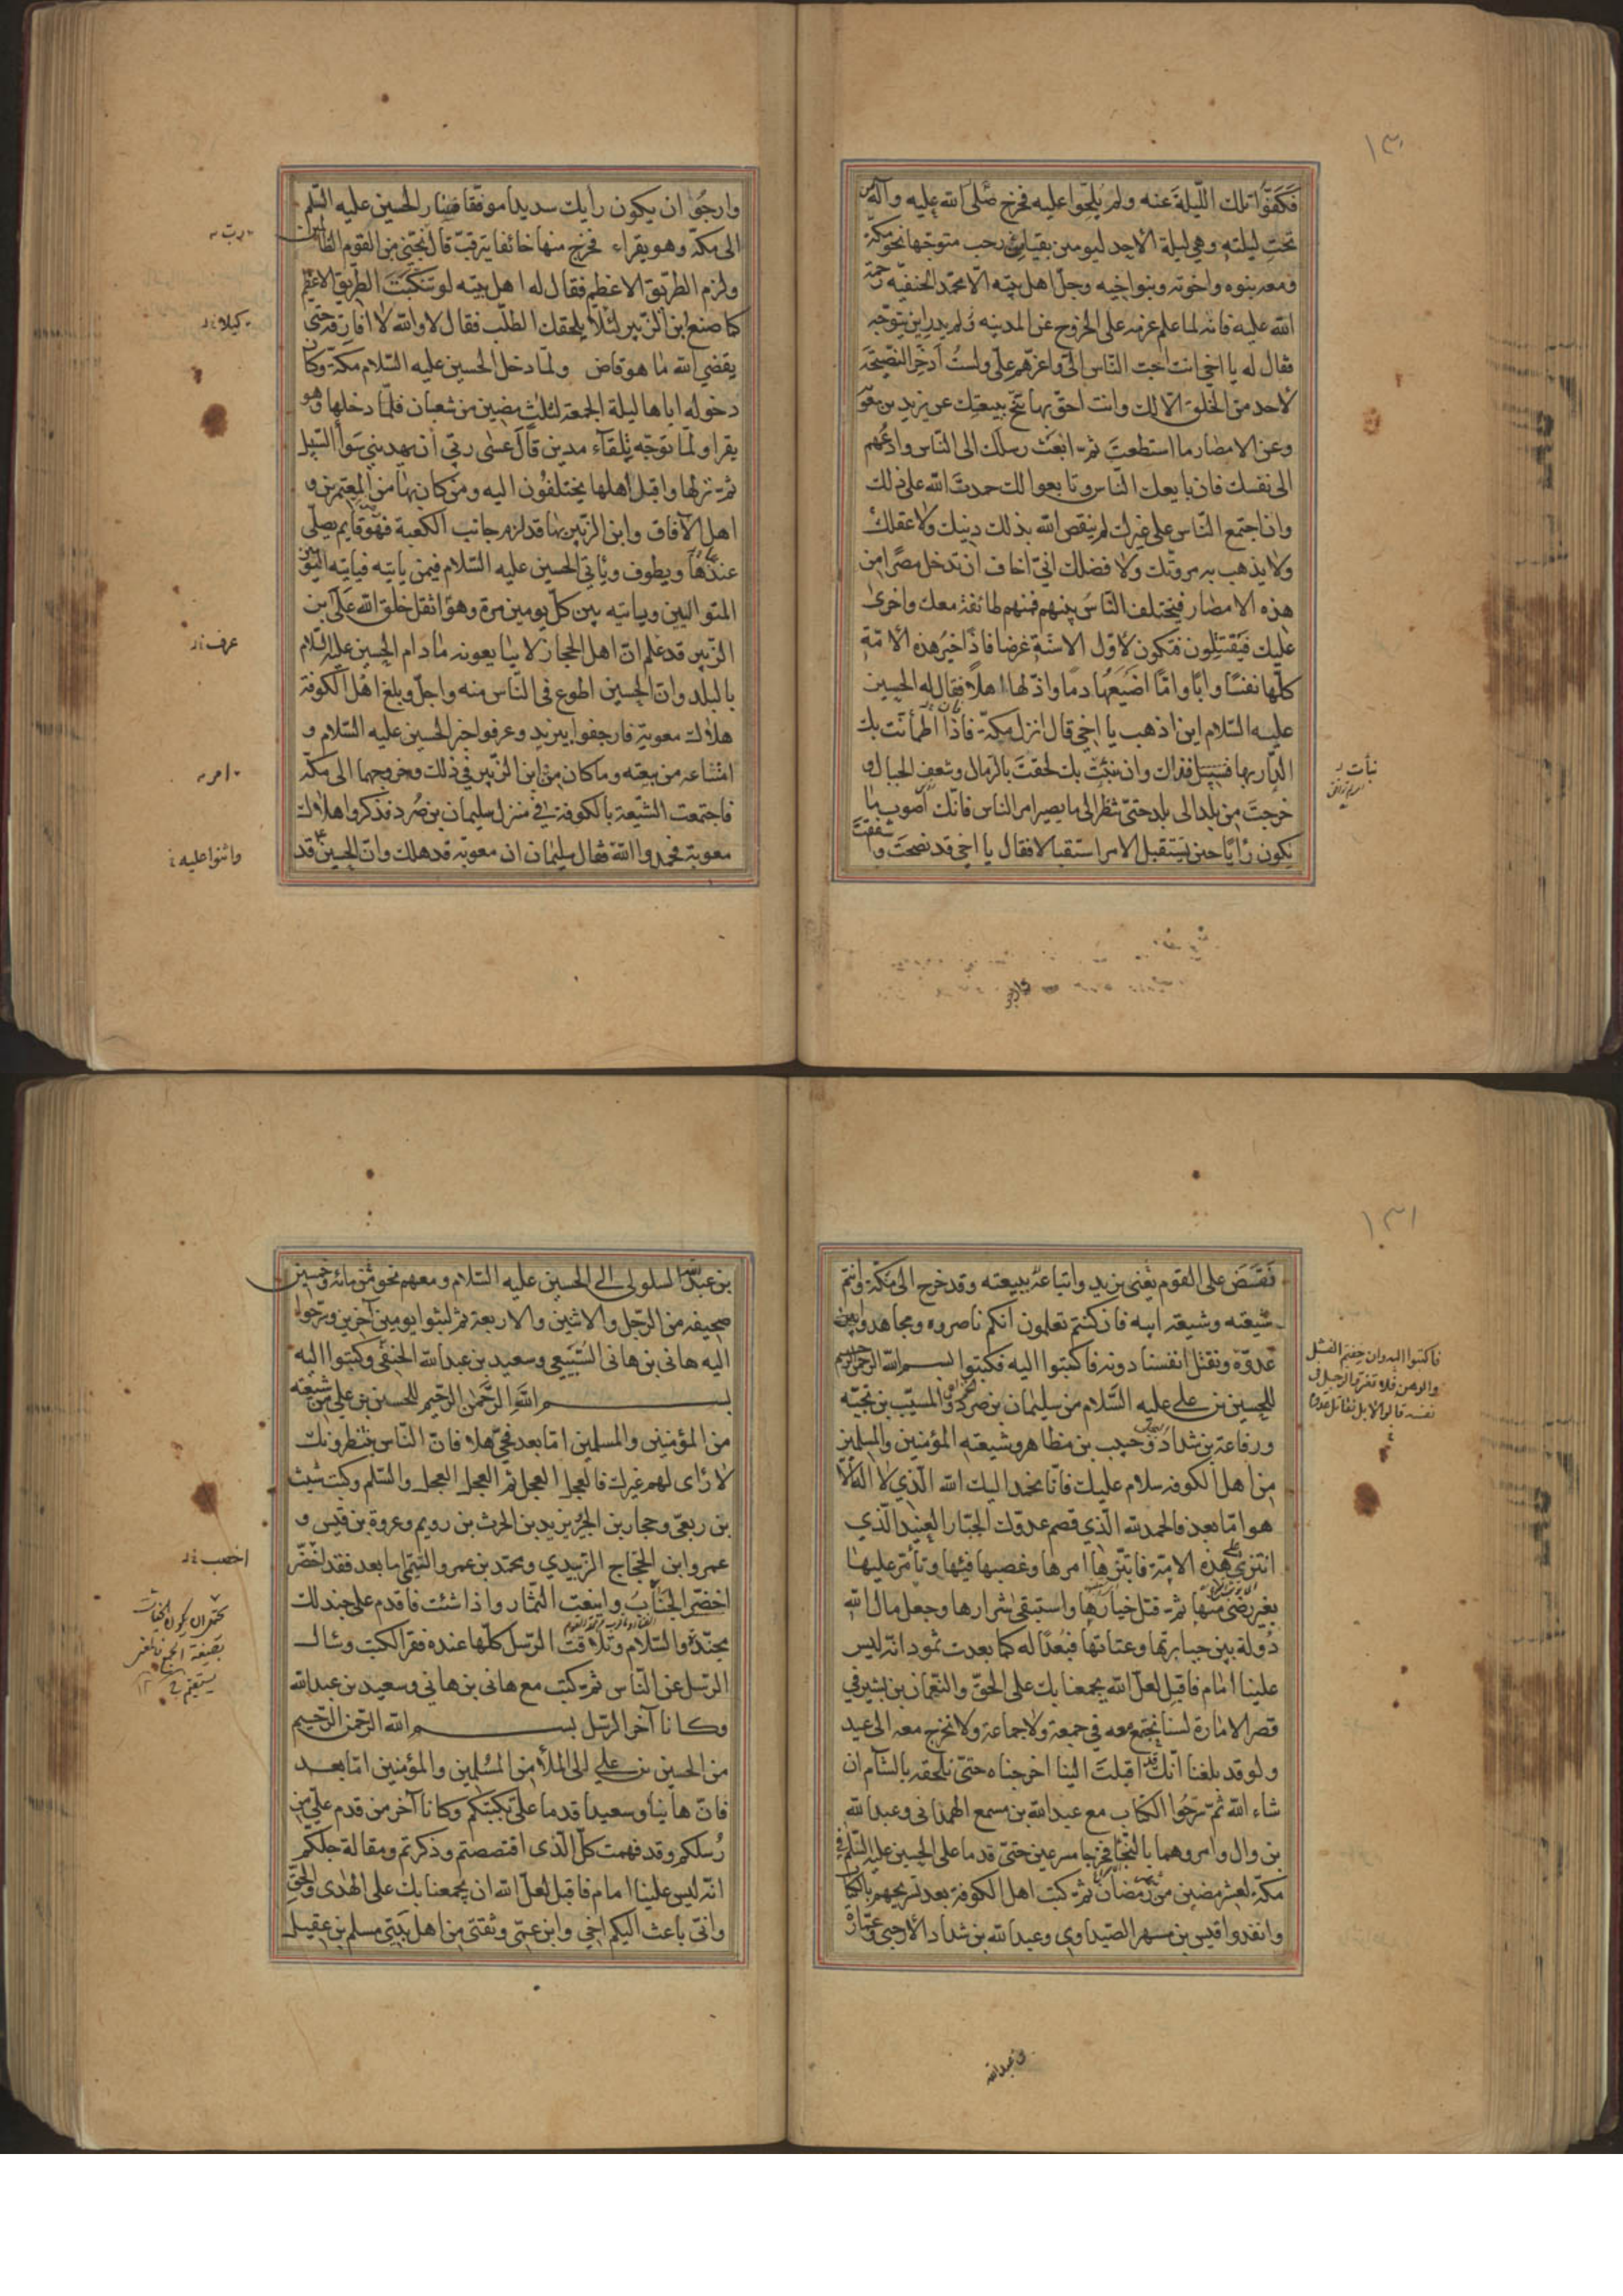 ١٣٠
فكفّوا تلك الليلة عنه ولم يلحّوا عليه فخرج صلى الله عليه وآله من
تحت ليلته وهي ليلة الأحد ليومين بقيا من رجب متوجّها نحو مكة
ومعه بنوه واخوته وبنو اخيه وجلّ اهل بيته الّا محمّد الحنفيّه رحمة
الله عليه فانه لما علم عزمه على الخروج عن المدينه ولم يدر اين يتوجّه
فقال له يا اخي انت احبّ النّاس اليّ واعزّهم عليّ ولستُ أدّخر النصيحة
لأحد من الخلق الّا لك وانت احقّ بها تنحّ ببيعتك عن يزيد بن معوية
وعن الامصار ما استطعتَ ثمّ ابعَث رسلك الى النّاس وادعُهم
الى نفسك فان بايعك النّاس وتابعوا لك حمدتَ الله على ذلك
وان اجتمع النّاس على غيرك لم ينقص الله بذلك دينك ولا عقلك
ولا يذهب به مروّتك ولا فضلك انيّ اخاف ان تدخل مصرًا من
هذه الامصار فيختلف النّاسُ بينهم فمنهم طائفة معك واخرى
عليك فيَقتتلون فتكون لأوّل الاسنّة غرضا فاذا خيرُ هذه الأمّة
كلّها نفسًا وابًا وامًّا اضيَعُها دمًا واذلّها اهلًا فقال له الحسين
عليه السّلام اين اذهب يا اخي قال انزل مكّة فاذا اطمأنّت بك
الدّار بها فسبيل فذاك وان نبَتْ بك لحقتَ بالرّمال وشعفِ الجبال و
خرجتَ من بلد الى بلد حتّى تنظر الى ما يصير امر الناس فانّك اصوب ما
يكون رأيًا حين تستقبل الامر استقبالا فقال يا اخي قد نصحتَ و
شفقتَ
نبأت
وارجُو ان يكون رأيك سديدا موفّقا فسار الحسين عليه السّلم
الى مكّة وهو يقراء فخرج منها خائفا يترقّب قال نجّني من القوم الظالمين
ولزم الطّريق الاعظم فقال له اهل بيته لو تنكّبتَ الطّريق الاعظم
كما صنع ابن الزّبير لئلّا يلحقك الطّلب فقال لا والله لا افارقه حتّى
يقضي الله ما هو قاض ولمّا دخل الحسين عليه السّلام مكّة وكان
دخوله اياها ليلة الجمعة لثلث مضين من شعبان فلمّا دخلها وهو
يقرا ولمّا توجّه تلقاء مدين قال عسى ربّي ان يهديني سواء السّبيل
ثمّ نزلها واقبل اهلها يختلفُون اليه ومن كان بها من المعتمرين و
اهل الآفاق وابن الزّبير بها قد لزم جانب الكعبة فهو قايم يصلّي
عندها ويطوف ويأتي الحسين عليه السّلام فيمن يأتيه فياتيه اليومين
المتواليين وياتيه بين كلّ يومين مرة وهو اثقل خلق الله على ابن
الزّبير قد علم انّ اهل الحجاز لا يبايعونه ما دام الحسين عليه السّلام
بالبلد وانّ الحسين اطوع في النّاس منه واجلّ وبلغ اهْل الكوفة
هلاك معوية فارجفوا بيزيد وعرفوا خبر الحسين عليه السّلام و
امتناعه من بيعته وما كان من ابن الزّبير في ذلك وخروجهما الى مكّة
فاجتمعت الشّيعة بالكوفة في منزل سليمان بن صُرد فذكروا هلاك
معوية فحمدوا الله فقال سليمان ان معوية قد هلك وانّ الحسين قد
ربّ
كيلا
عرف
امر
واثنوا عليه
١٣١
تقبّض على القوم يعني يزيد واتباعه ببيعته وقد خرج الى مكّة وانتم
شيعته وشيعة ابيه فان كنتم تعلمون انكم ناصروه ومجاهدوا
عدوّه ونقتل انفسنا دونه فاكتبوا اليه فكتبوا بسم الله الرحمن الرحيم
للحسين بن علي عليه السّلام من سليمان بن صرد والمسيّب بن نجبّه
ورفاعة بن شدّاد وحبيب بن مظاهر وشيعته المؤمنين والمسلمين
من اهل الكوفه سلام عليك فانّا نحمد اليك الله الّذي لا اله الّا
هو امّا بعد فالحمد لله الّذي قصم عدوّك الجبّار العنيد الّذي
انتزى على هذه الامّة فابتزّها امرها وغصبها فيئها وتأمّر عليها
بغير رضى منها ثمّ قتل خيارها واستبقى شرارها وجعل مال الله
دُولة بين جبابرتها وعتاتها فبُعدًا له كما بعدت ثمود انّه ليس
علينا امام فاقبل لعلّ الله يجمعنا بك على الحقّ والنّعمان بن بشير في
قصر الامارة لسنا نجتمع معه في جمعة ولا جماعة ولا نخرج معه الى عيد
ولو قد بلغنا انّك قد اقبلتَ الينا اخرجناه حتّى نلحقه بالشّام ان
شاء الله ثمّ سرّحُوا الكتاب مع عبد الله بن مسمع الهمداني وعبد الله
بن وال وامروهما بالنّجا فخرجا مسرعين حتّى قدما على الحسين عليه السّلم في
مكّة لعشر مضين من رمضان ثمّ كتب اهل الكوفة بعد تسريحهم بالكتاب
وانفذوا قيس بن مسهر الصّيداوي وعبد الله بن شدّاد الأرحبي وعمّارة
فاكتبوا اليه وان خفتم الفشل
والوهن فلا تغرّوا الرجل في
نفسه قالوا لا بل نقاتل عدوه
بن عبد الله
بن عبد الله السلولي الى الحسين عليه السّلام ومعهم نحو من مائة وخمسين
صحيفه من الرّجل والاثنين والاربعة ثمّ لبثوا يومين آخرين وسرّحوا
اليه هاني بن هاني السّبيعي وسعيد بن عبد الله الحنفي وكتبوا اليه
بسم الله الرّحمن الرّحيم للحسين بن علي من شيعته
من المؤمنين والمسلمين امّا بعد فحيّ هلا فانّ النّاس ينتظرونك
لا رأى لهم غيرك فالعجل العجل ثم العجل العجل والسّلم وكتب شبث
بن ربعي وحجار بن ابجر ويزيد بن الحرث بن رويم وعروة بن قيس و
عمرو ابن الحجّاج الزّبيدي ومحمّد بن عمرو التّيمي امّا بعد فقد اخضّر
اخضّر الجنابُ واينعت الثمّار واذا شئت فاقدم على جند لك
مجنّدة والسّلام وتلاقت الرّسل كلّها عنده فقرا الكتب وسأل
الرّسل عن النّاس ثمّ كتب مع هاني بن هاني وسعيد بن عبد الله
وكانا آخر الرّسل بسم الله الرّحمن الرّحيم
من الحسين بن علي الى الملأ من المسُلمين والمؤمنين امّا بعد
فانّ هانيئا وسعيدا قدما عليّ بكتبكم وكانا آخر من قدم عليّ من
رُسلكم وقد فهمت كلّ الّذي اقتصصتم وذكرتم ومقالة جلّكم
انّه ليس علينا امام فاقبل لعلّ الله ان يجمعنا بك على الهُدى والحقّ
وانّي باعث اليكم اخي وابن عمّي وثقتي من اهل بَيتي مسلم بن عقيل
اخصب